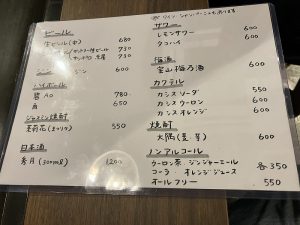 ビール
生ビール(中) 680
730
730
600
ハイボール
碧Ao 780
650
ジャスミン焼酎
茉莉花(まつりか) 550
日本酒
秀月(300ml) 1200
サワー
レモンサワー 600
タコハイ 600
梅酒
宝山梅乃酒 600
カクテル
カシスソーダ 550
カシスウーロン 600
カシスオレンジ 600
焼酎
大隅(芋、麦) 600
ノンアルコール
ウーロン茶・ジンジャーエール
コーラ オレンジジュース 各350
オールフリー 550